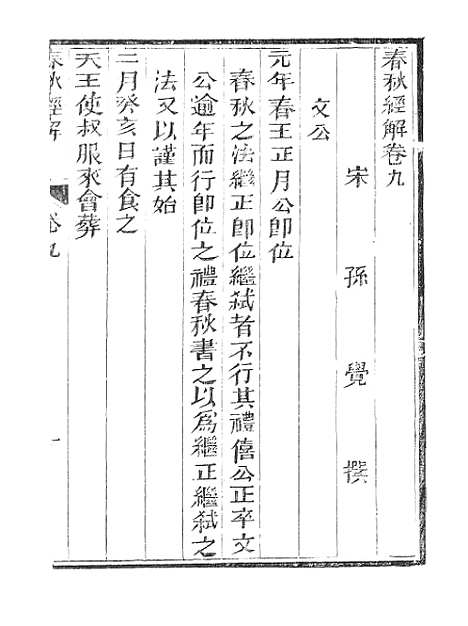 春秋經解卷九
宋孫覺撰
文公
元年春王正月公即位
春秋之法繼正即位繼弑者不行其禮僖公正卒文
公逾年而行即位之禮春秋書之以爲繼正繼弑之
法又以謹其始
二月癸亥日有食之
天王使叔服來會葬
春秋經解
卷九
一